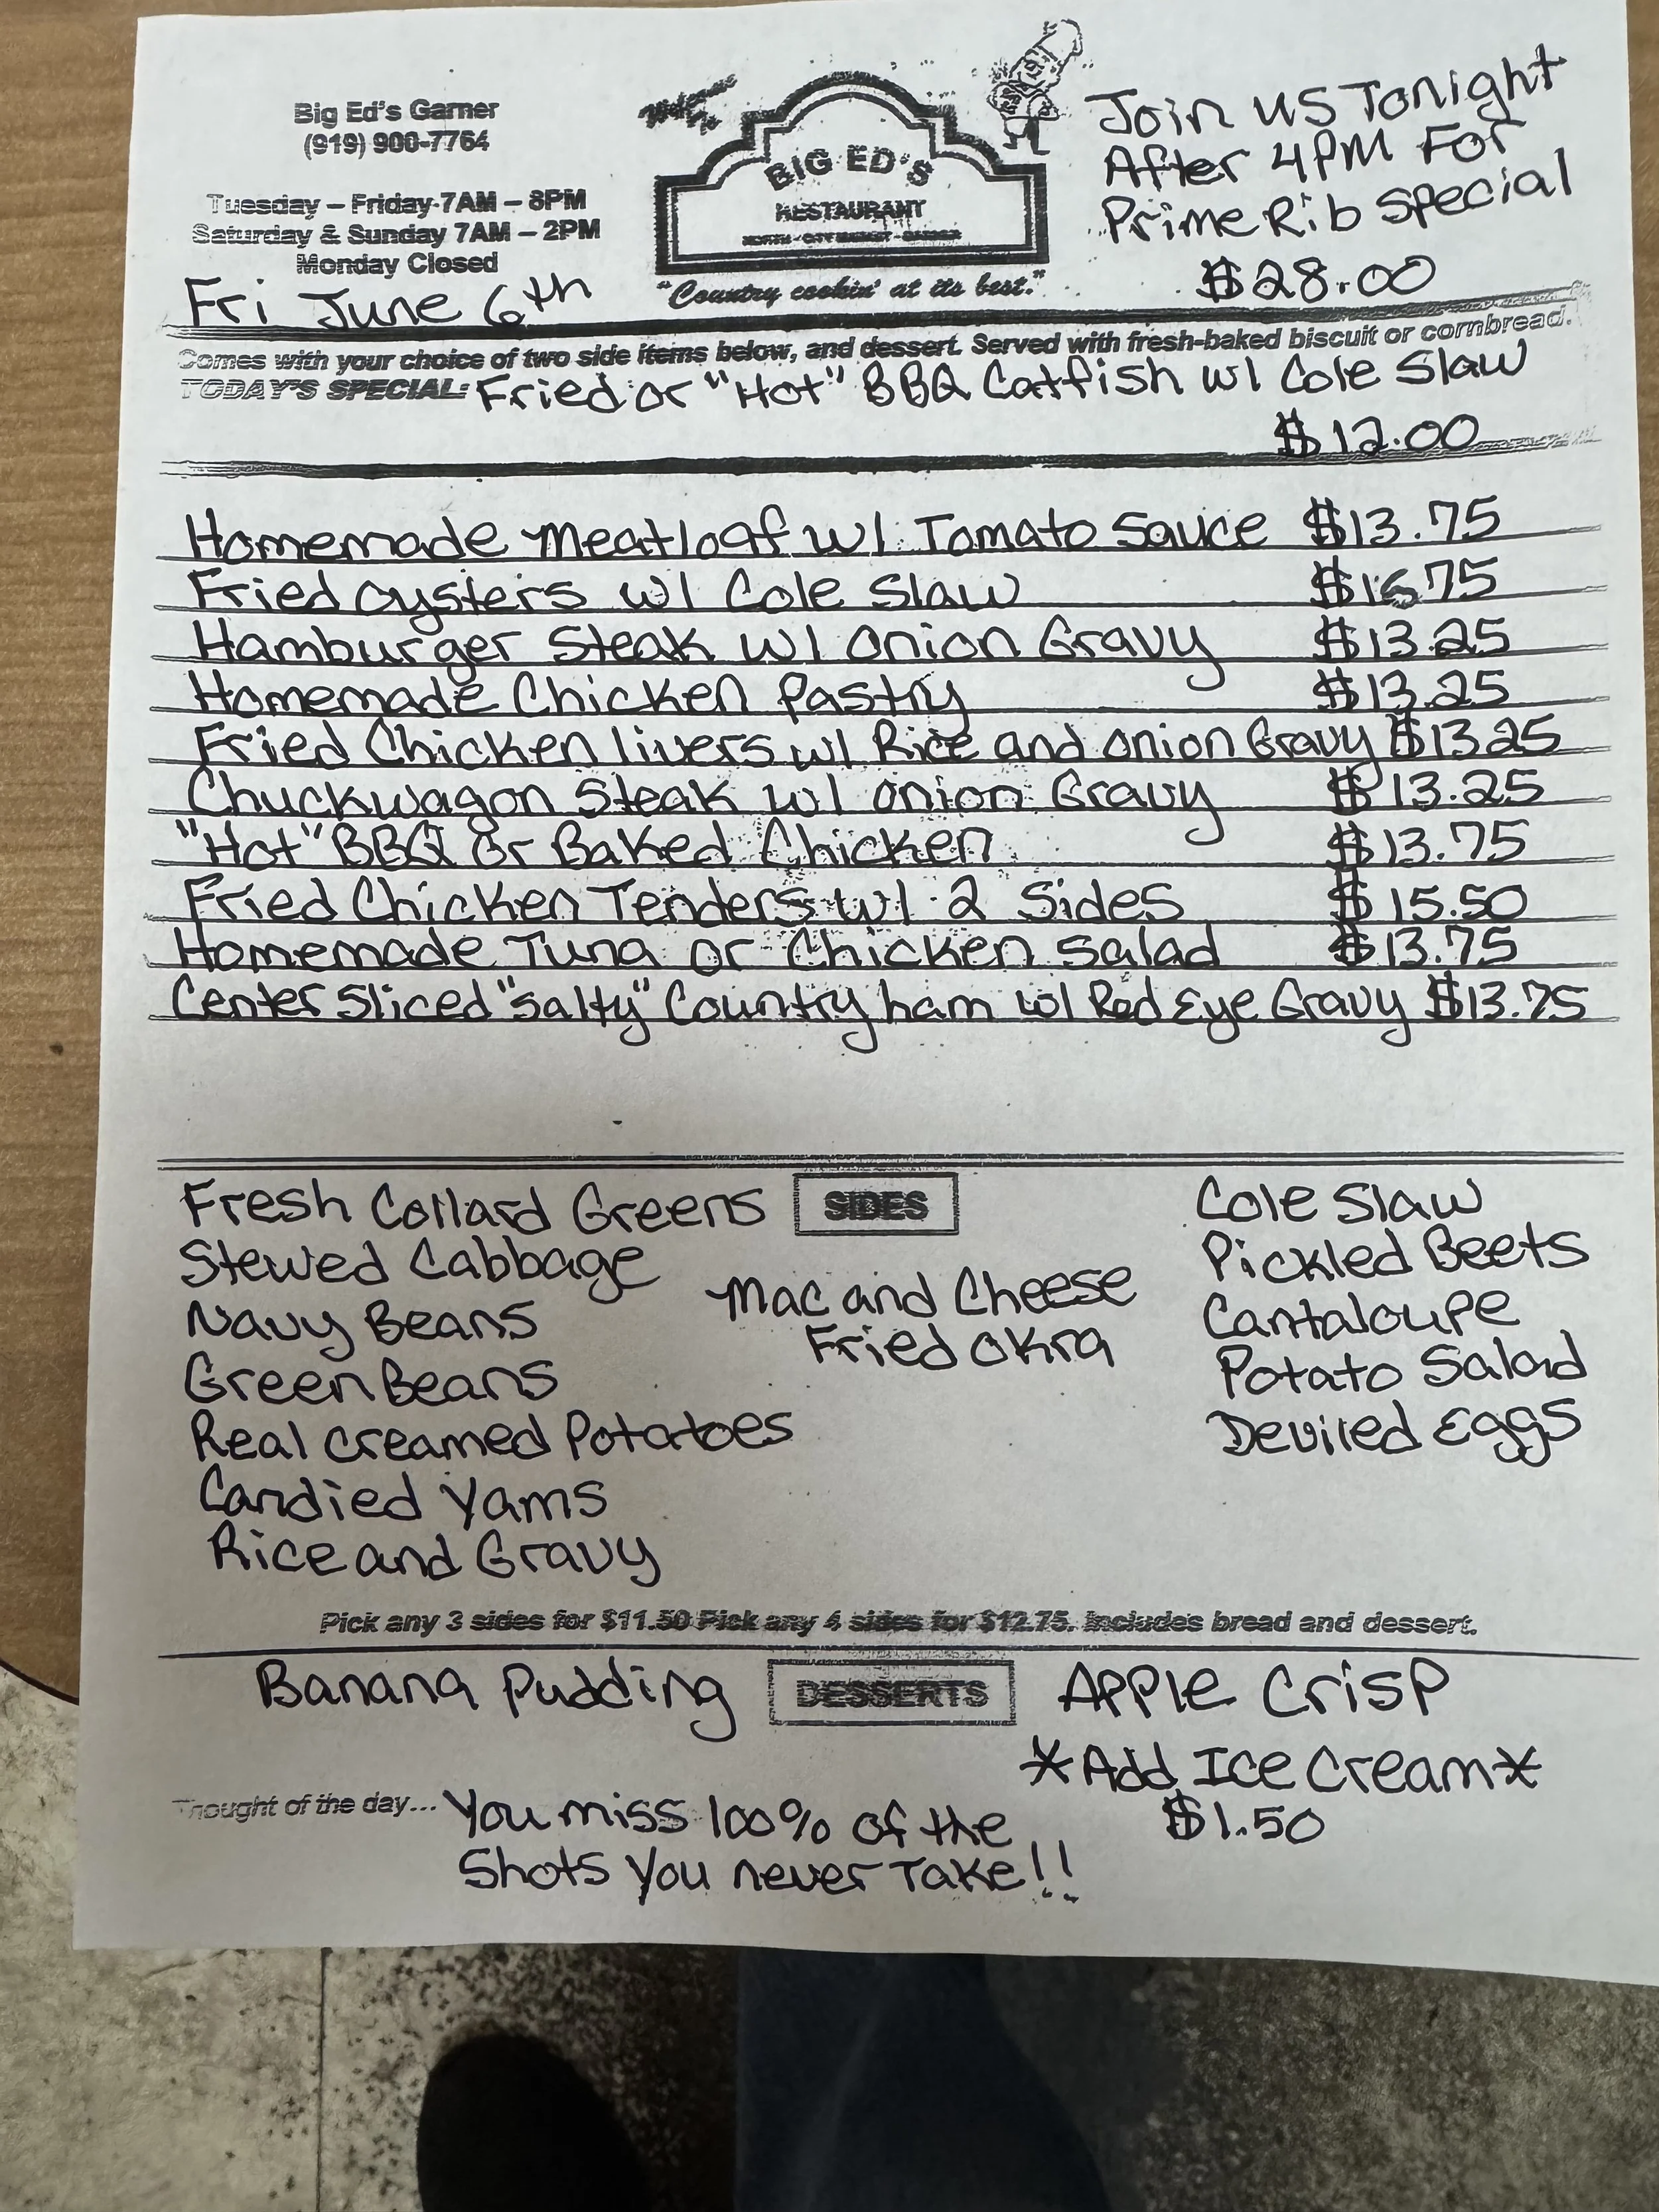 Big Ed's Garner
(919) 900-7764
Tuesday – Friday 7AM – 8PM
Saturday & Sunday 7AM – 2PM
Monday Closed
Fri June 6th
BIG ED'S
RESTAURANT
NORTH - CITY MARKET - GARNER
"Country cookin' at its best."
Join us Tonight
After 4PM For
Prime Rib Special
$28.00
Comes with your choice of two side items below, and dessert. Served with fresh-baked biscuit or cornbread.
TODAY'S SPECIAL: Fried or "Hot" BBQ Catfish w/ Cole Slaw
$12.00
Homemade Meatloaf w/ Tomato Sauce $13.75
Fried oysters w/ Cole Slaw $16.75
Hamburger Steak w/ Onion Gravy $13.25
Homemade Chicken Pastry $13.25
Fried Chicken livers w/ Rice and onion Gravy $13.25
Chuckwagon Steak w/ onion Gravy $13.25
"Hot" BBQ or Baked Chicken $13.75
Fried Chicken Tenders w/ 2 Sides $15.50
Homemade Tuna or Chicken Salad $13.75
Center Sliced "Salty" Country ham w/ Red Eye Gravy $13.75
SIDES
Fresh Collard Greens
Stewed Cabbage
Navy Beans
Green Beans
Real Creamed Potatoes
Candied Yams
Rice and Gravy
Mac and Cheese
Fried Okra
Cole Slaw
Pickled Beets
Cantaloupe
Potato Salad
Deviled Eggs
Pick any 3 sides for $11.50 Pick any 4 sides for $12.75. Includes bread and dessert.
Banana Pudding DESSERTS Apple Crisp
*Add Ice Cream*
$1.50
Thought of the day... You miss 100% of the
Shots You never Take!!